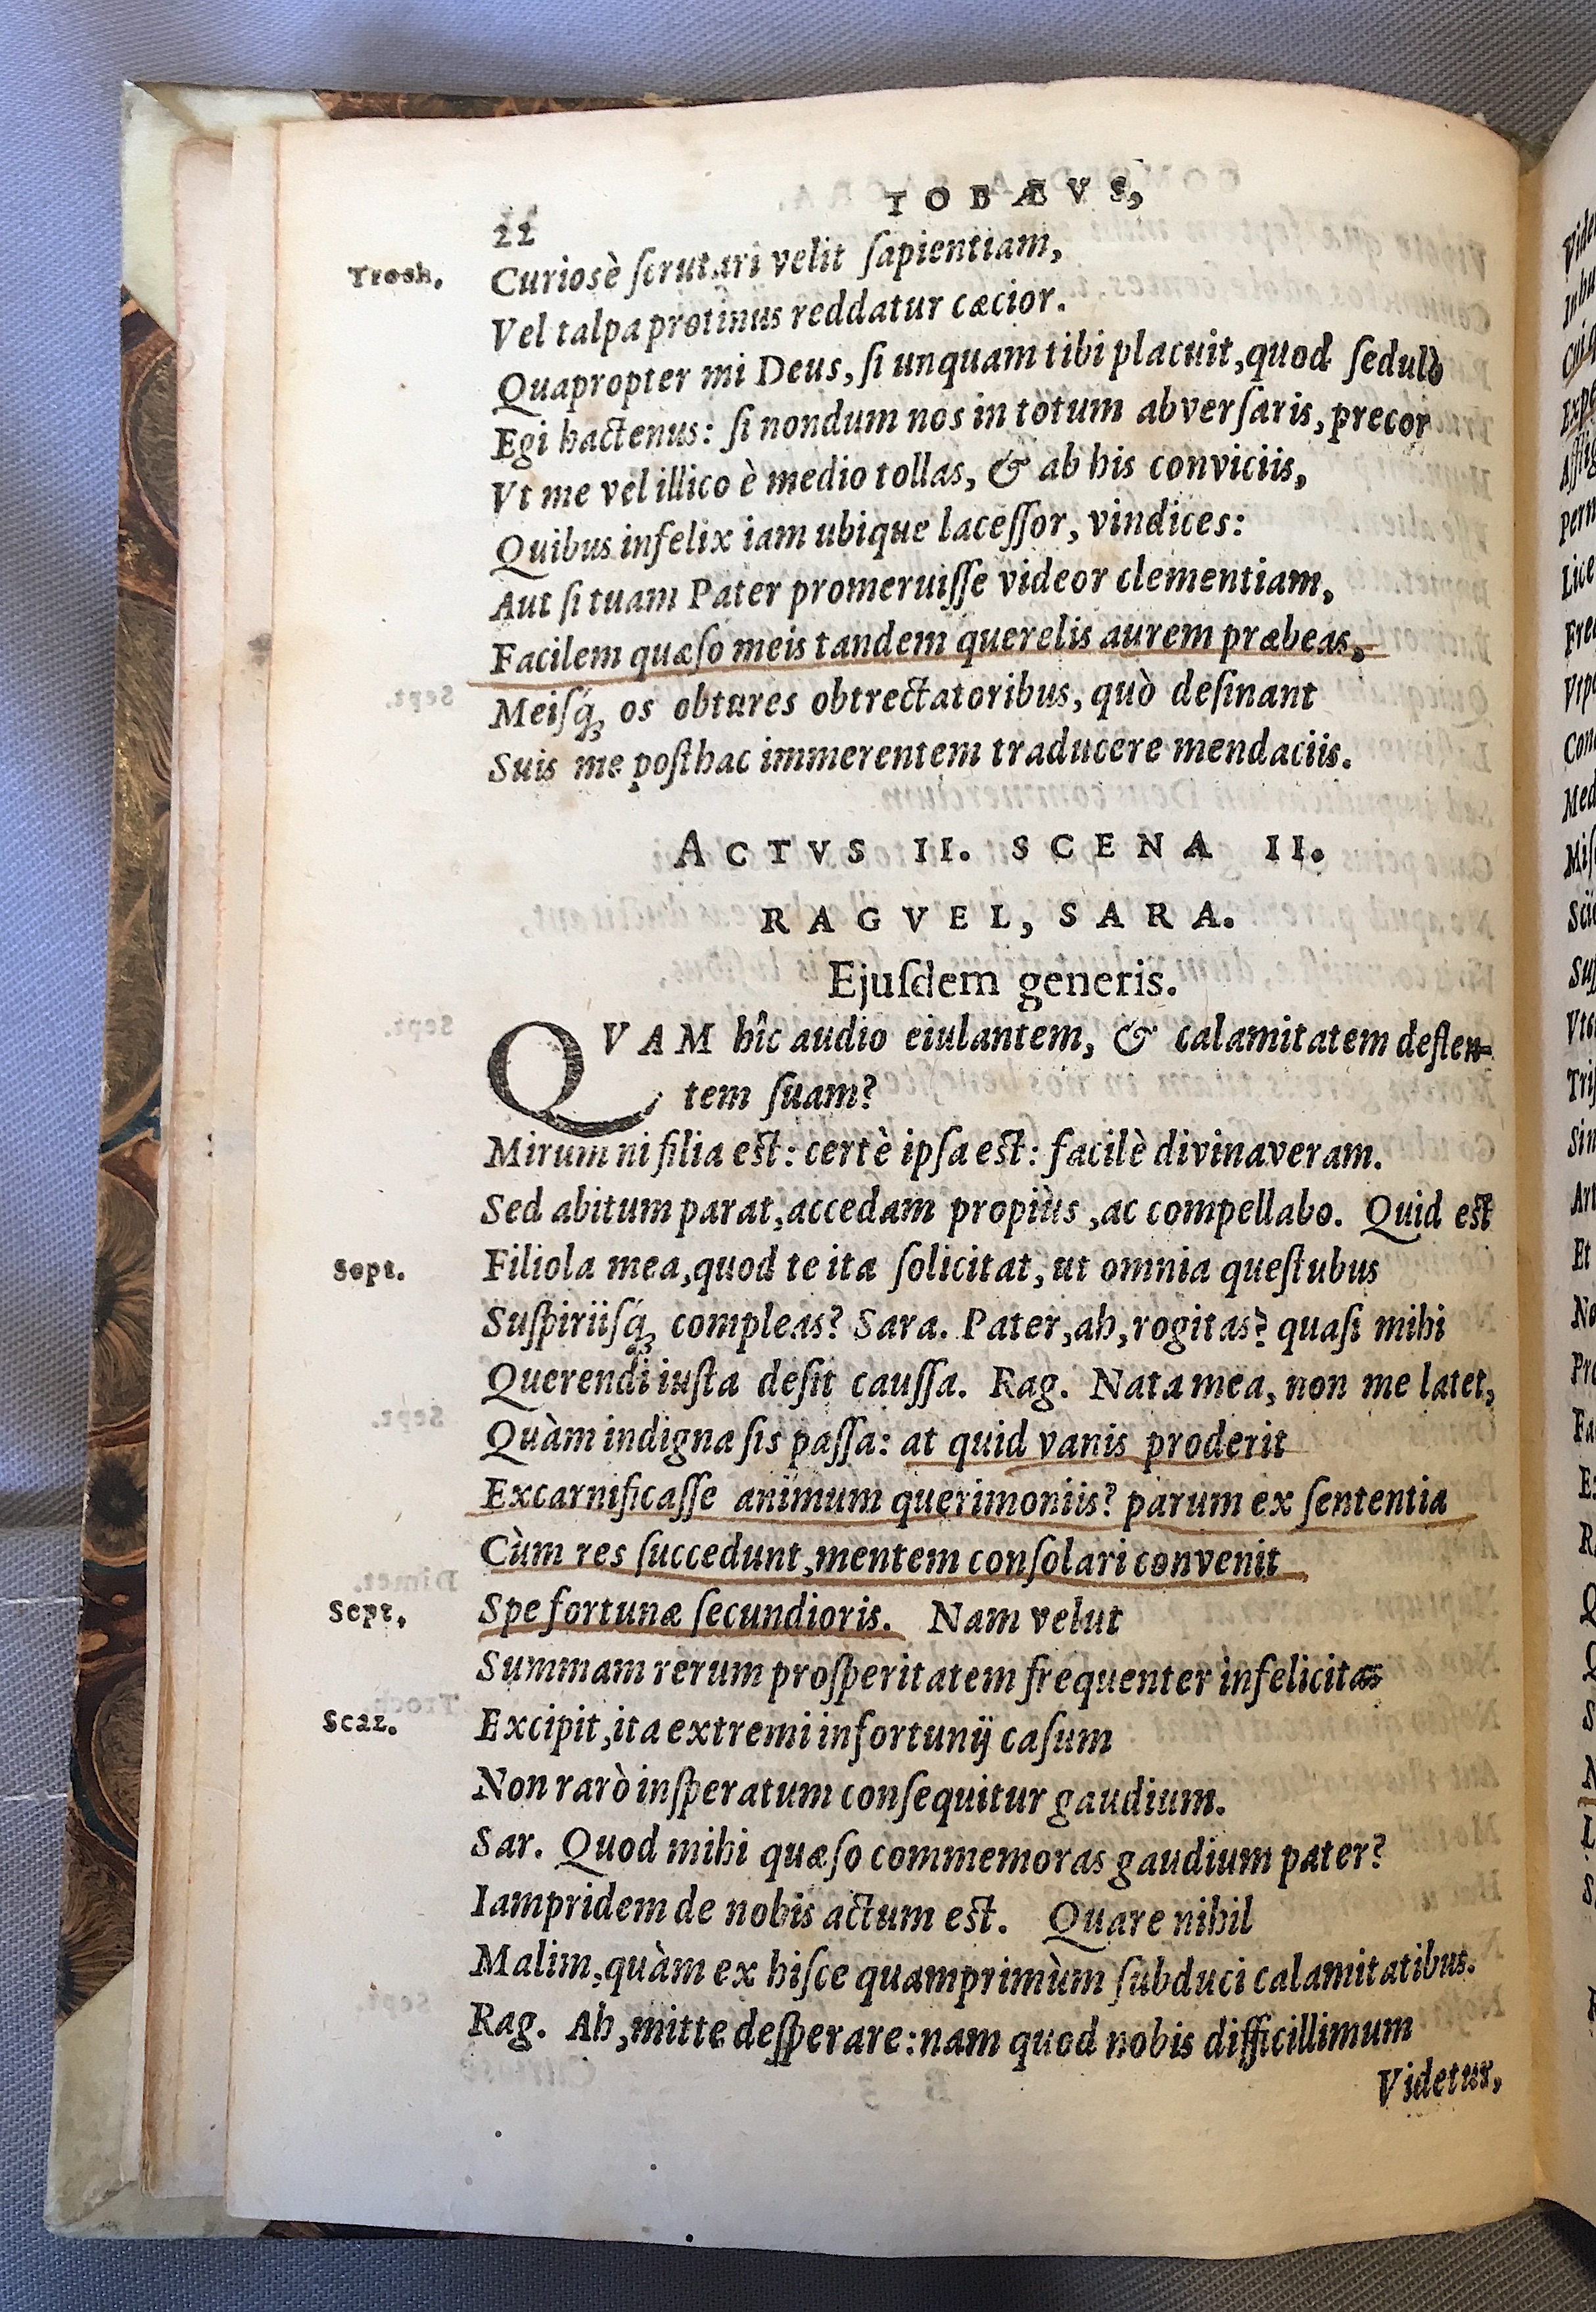 TOBÆVS,
22
Troch. Curiosè ſcrutari velit ſapientiam,
Vel talpa protinus reddatur cæcior.
Quapropter mi Deus, ſi unquam tibi placuit, quod ſedulò
Egi hactenus: ſi nondum nos in totum abverſaris, precor
Vt me vel illico è medio tollas, & ab his conviciis,
Quibus infelix iam ubique laceſſor, vindices:
Aut ſi tuam Pater promeruiſſe videor clementiam,
Facilem quæſo meis tandem querelis aurem præbeas,
Meiſq́; os obtures obtrectatoribus, quò deſinant
Suis me poſthac immerentem traducere mendaciis.
ACTVS II. SCENA II.
RAGVEL, SARA.
Ejuſdem generis.
QVAM hîc audio eiulantem, & calamitatem deflen-
tem ſuam?
Mirum ni filia eſt: certè ipſa eſt: facilè divinaveram.
Sed abitum parat, accedam propiùs, ac compellabo. Quid eſt
Sept. Filiola mea, quod te ita ſolicitat, ut omnia queſtubus
Suſpiriiſq́; compleas? Sara. Pater, ah, rogitas? quaſi mihi
Querendi iuſta deſit cauſſa. Rag. Nata mea, non me latet,
Quàm indigna ſis paſſa: at quid vanis proderit
Excarnificaſſe animum querimoniis? parum ex ſententia
Cùm res ſuccedunt, mentem conſolari convenit
Sept. Spe fortunæ ſecundioris. Nam velut
Summam rerum proſperitatem frequenter infelicitas
Scaz. Excipit, ita extremi infortunij caſum
Non rarò inſperatum conſequitur gaudium.
Sar. Quod mihi quæſo commemoras gaudium pater?
Iampridem de nobis actum eſt. Quare nihil
Malim, quàm ex hiſce quamprimùm ſubduci calamitatibus.
Rag. Ah, mitte deſperare: nam quod nobis difficillimum
Videtur,